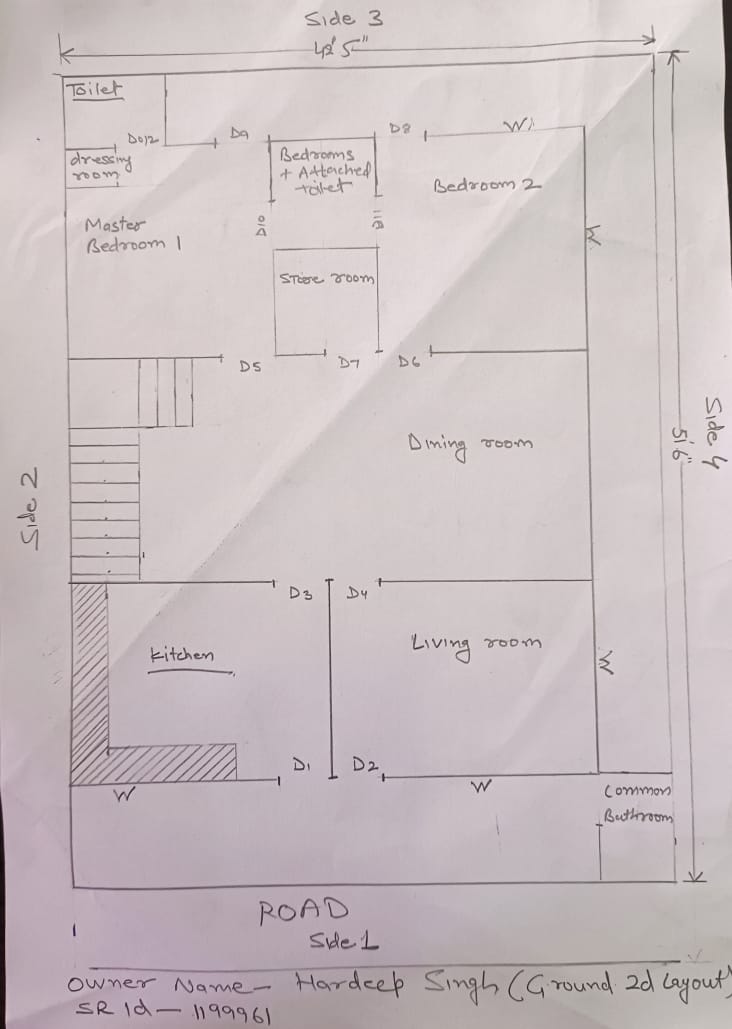 Side 3
42' 5"
Toilet
D012
D9
D8
W
dressing
room
Bedrooms
+ Attached
toilet
Bedroom 2
Master
Bedroom 1
D10
D11
W
Store room
D5
D7
D6
Side 2
Dining room
Side 4
51'6"
D3
D4
Kitchen
Living room
W
D1
D2
W
W
Common
Bathroom
ROAD
Side 1
Owner Name - Hardeep Singh (Ground 2d Layout)
SR Id - 1199961